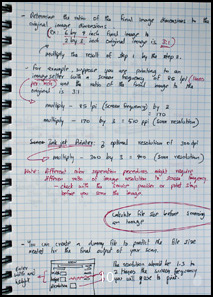 - Determine the ratio of the final image dimensions to the
original image dimensions.
Ex: 6 by 9 inch final image to
2 by 3 inch original image is 3:1
- multiply the result of step 1 by the step 2.
- For example - suppose you are printing to an
image setter with a screen frequency of 85 lpi (lines
per inch) and the ratio of the final image to the
original is 3:1.
multiply - 85 lpi (screen frequency) by 2
170
multiply - 170 by 3 = 510 ppi (scan resolution)
Ink jet Printer: optimal resolution of 300 dpi
multiply - 300 by 3 = 900 (scan resolution)
Note: different color separation procedures might require
different ratios of image resolution to screen frequency.
- check with the service provider or print shop
before you scan the image.
Calculate file size before scanning
an image
- You can create a dummy file to predict the file size
needed for the final output of your scan.
Enter
width and
height
10
The resolution should be 1.5 to
2 times the screen frequency
you will use to print.